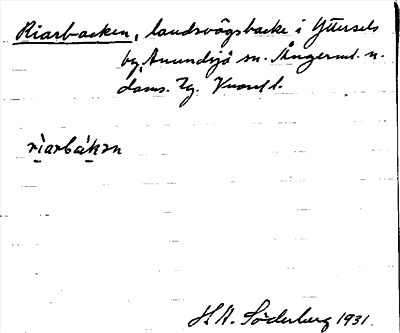 Riarbacken, landsvägsbacke i Yttersels
by, Anundsjö sn. Ångerml. n.
doms.
riarbákɘn
H. A. Söderberg 1931.